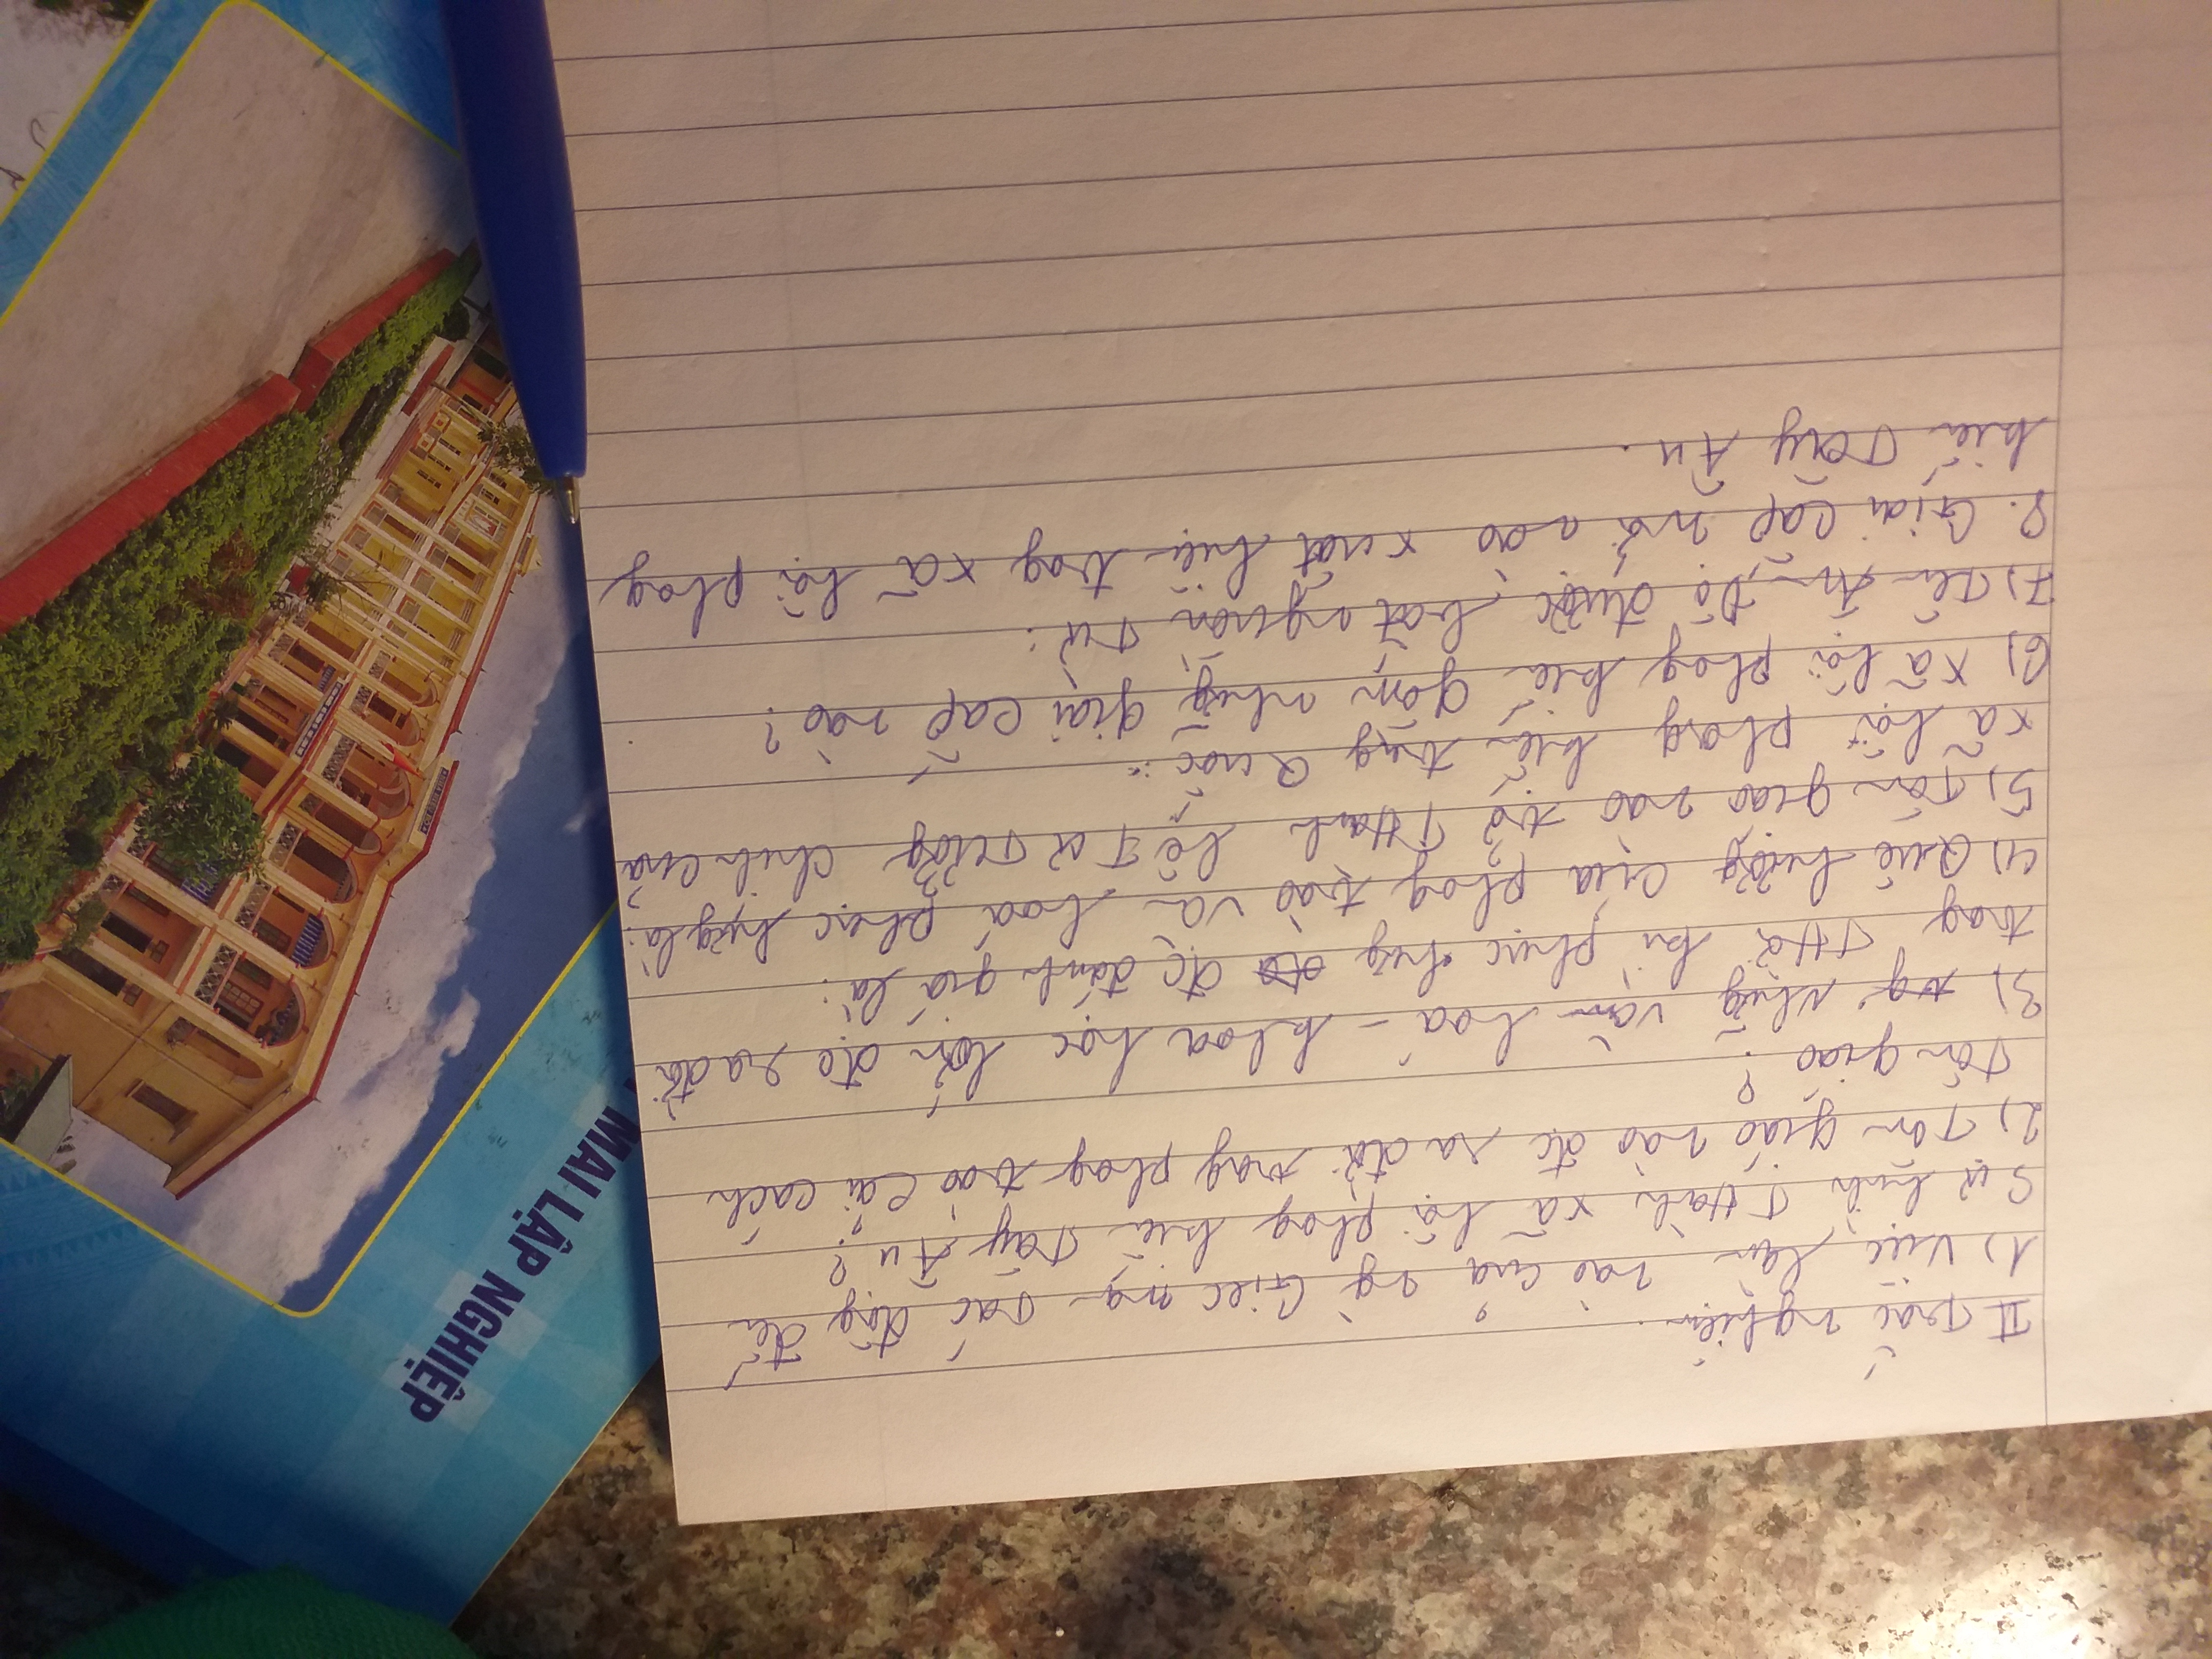 II Trắc nghiệm.
1) Việc làm nào của ng` Giéc man tác động đến
sự hình Thành xã hội phog kiến Tây Âu?
2) Tôn giáo nào đc ra đời trog phog trào cải cách
Tôn giáo?
3) Nhữg văn hoá - khoa học lớn đc ra đời
trog THời kì phục hưg đc đánh giá là:
4) Quê hươg của phog trào văn hoá phục hưg là:
5) Tôn giáo nào trở THành hệ Tư Tưởg chính của
xã hội phog kiến trug Quốc:
6) Xã hội phog kiến gồm nhữg giai cấp nào?
7) Tên Ấn Độ được bắt nguồn Từ:
8. Giai cấp mới nào xuất hiện trog xã hội phog
kiến Tây Âu.
MAI LẬP NGHIỆP